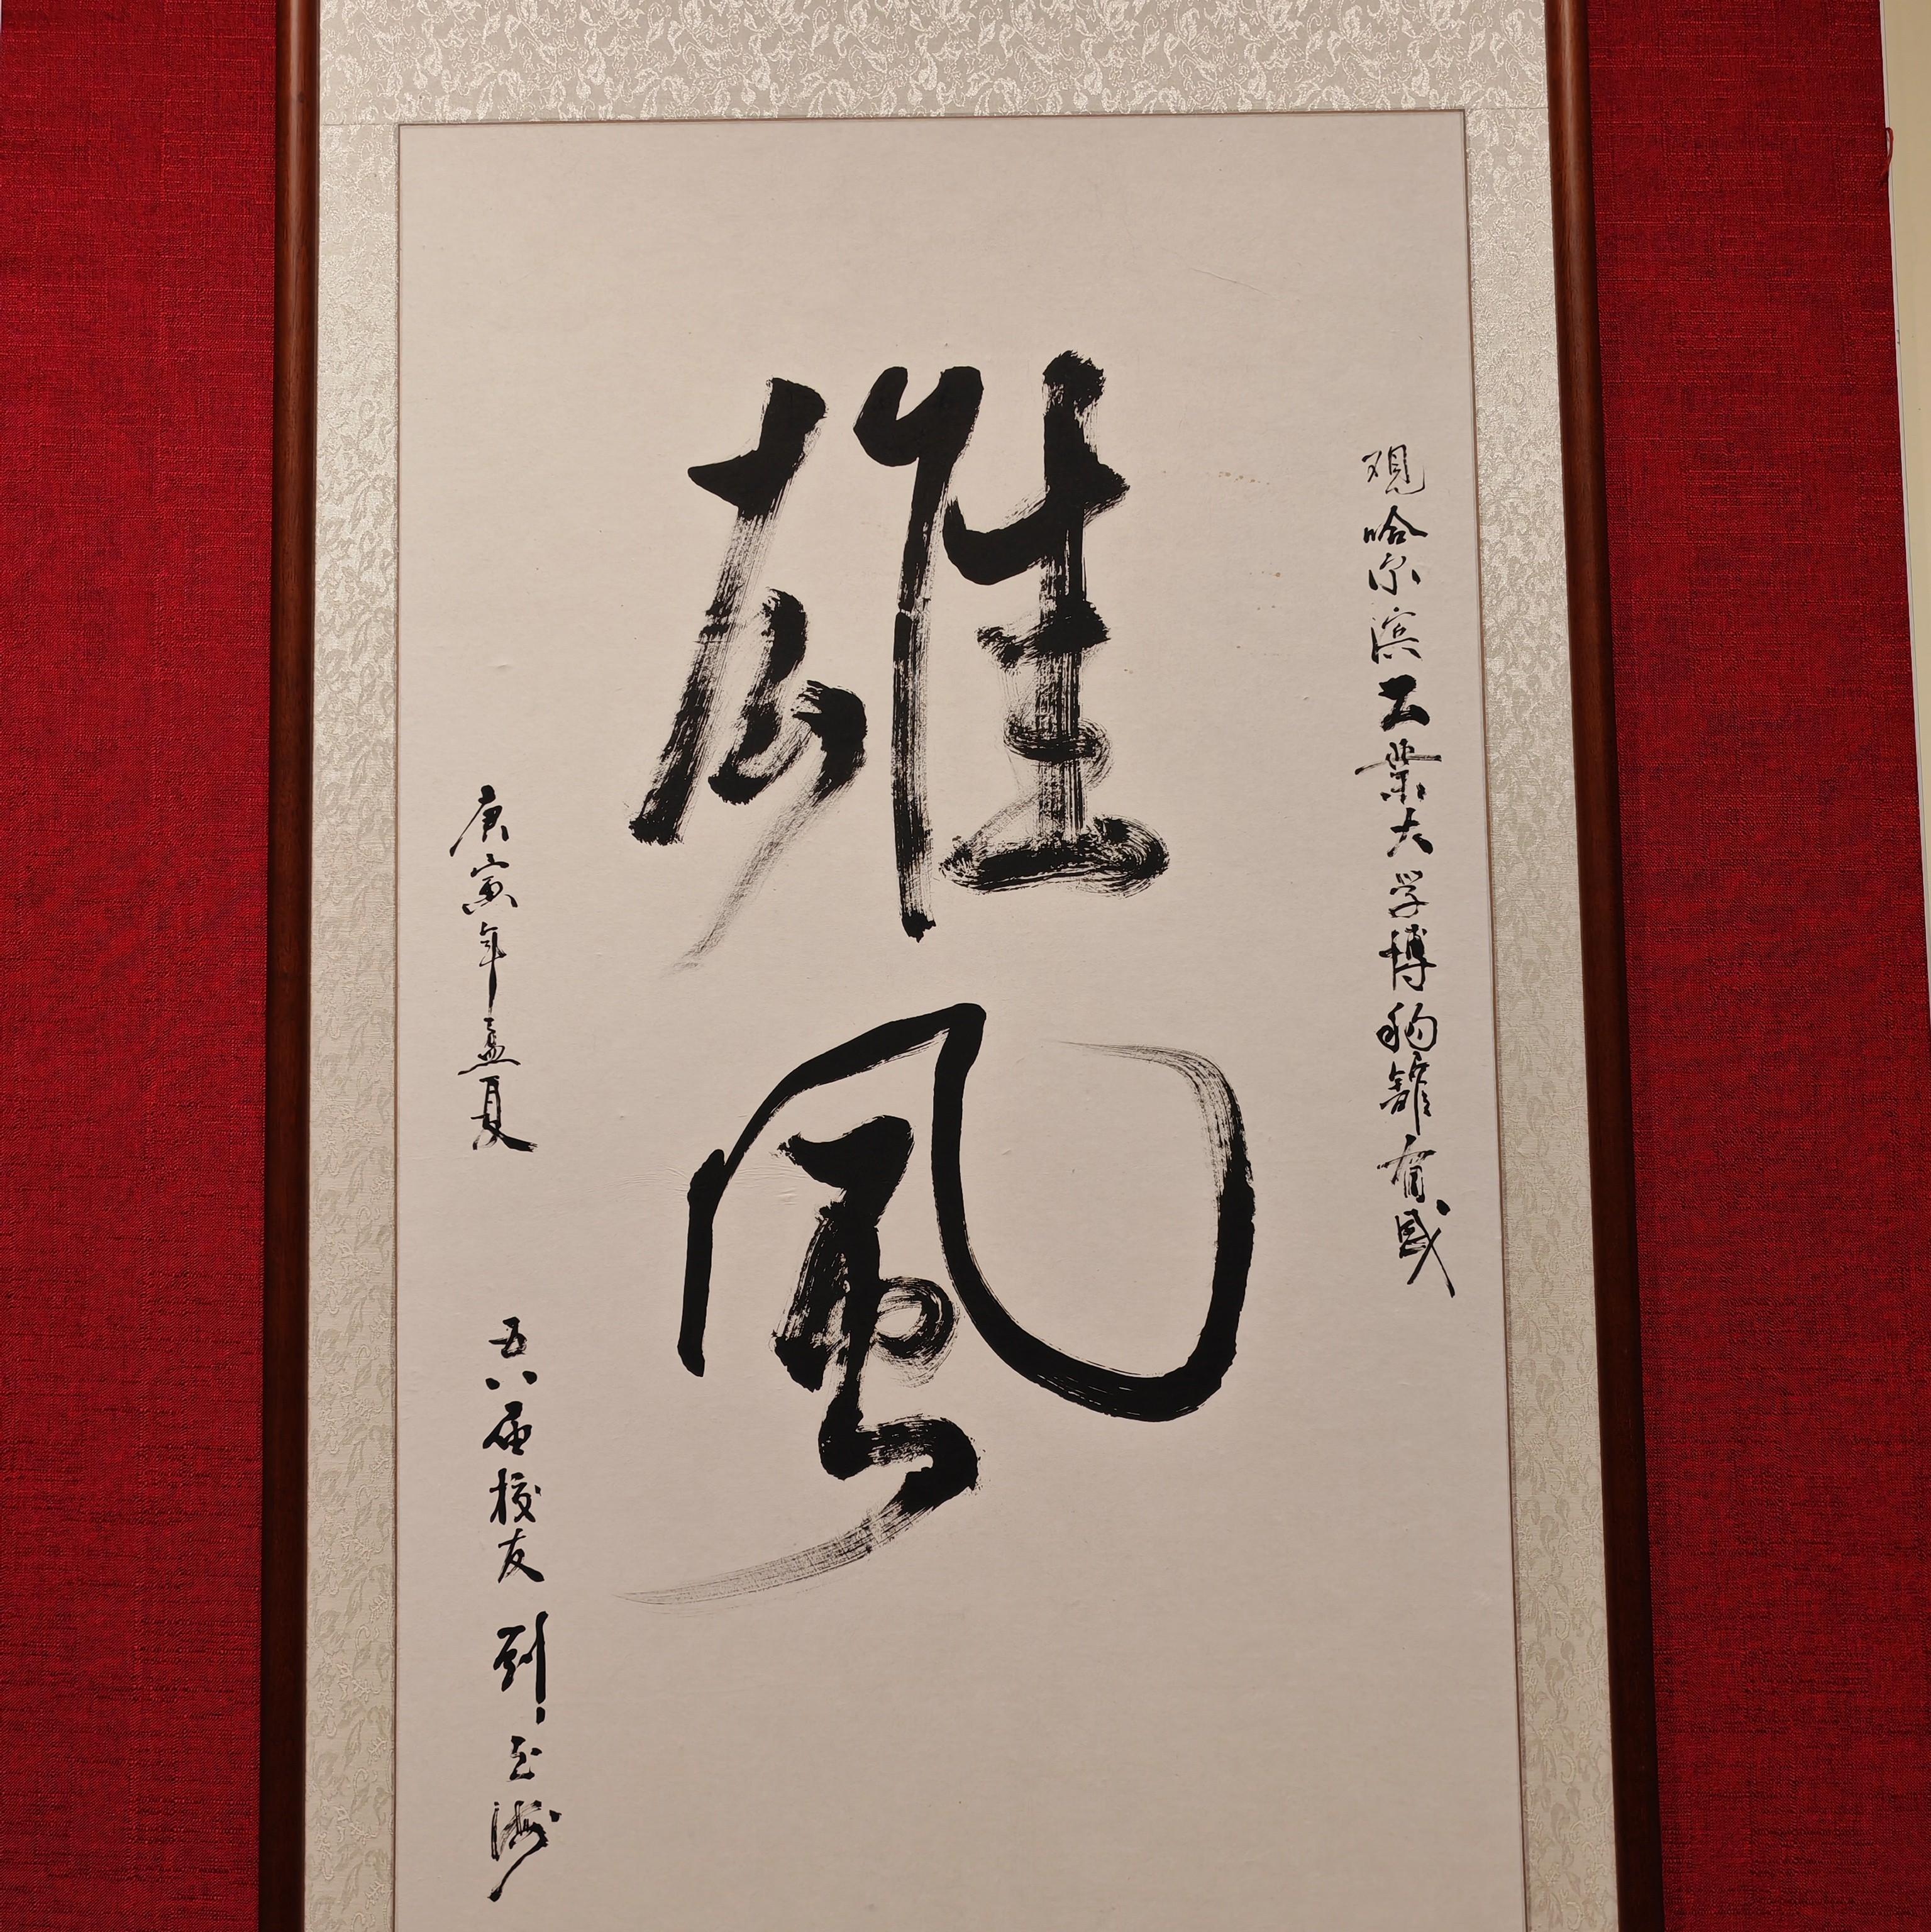 观哈尔滨工业大学博物馆有感
雄风
庚寅年孟夏
五八届校友 刘玉海